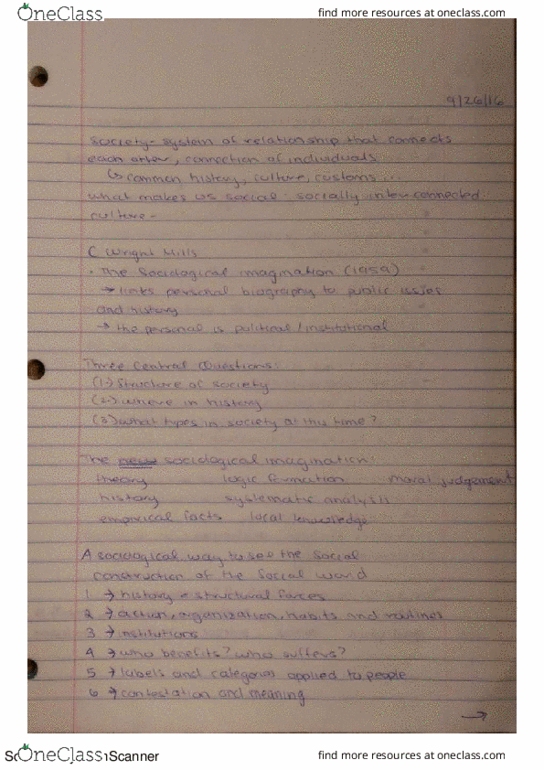 OneClass
find more resources at oneclass.com
9/26/16
Society - system of relationship that connects
each other, connection of individuals
↳ common history, culture, customs ...
what makes us social: socially inter connected
culture -
C Wright Mills
· The Sociological imagination (1959)
→ links personal biography to public
and history
→ the personal is political / institutional
Three Central Questions:
(1) Structure of society
(2) where in history
(3) what types in society at this time?
The new sociological imagination:
theory logic formation moral judgement
history systematic analysis
empirical facts local knowledge
A sociological way to see the social
construction of the social world
1 → history + structural forces
2 → action, organization, habits and routines
3 → institutions
4 → who benefits? who suffers?
5 → labels and categories applied to people
6 → contestation and meaning
→
OneClass Scanner
find more resources at oneclass.com